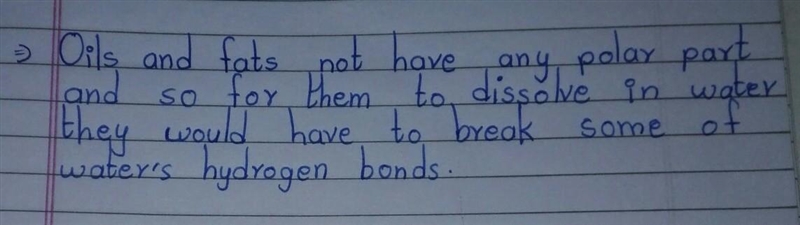 ⇒ Oils and fats not have any polar part
and so for them to dissolve in water
they would have to break some of
water's hydrogen bonds.